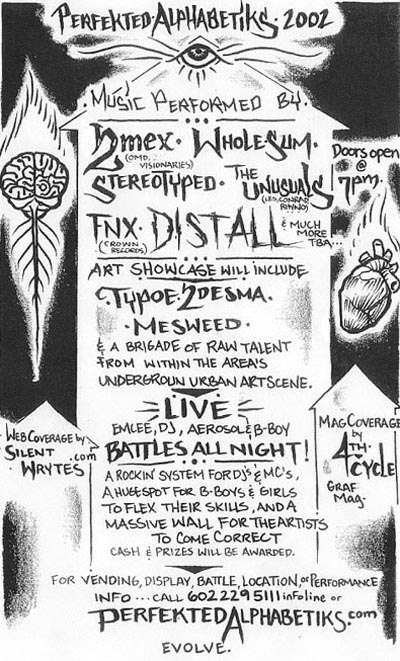 PERFEKTED·ALPHABETIKS·2002
·MUSIC PERFORMED BY·
2MEX· WHOLESUM·
(OMD, VISIONARIES)
STEREOTYPED· THE UNUSUALS
FNX· DISTALL & MUCH MORE TBA...
(CROWN RECORDS)
DOORS OPEN
@
7PM.
ART SHOWCASE WILL INCLUDE
TYPOE·2DESMA·
·MESWEED·
& A BRIGADE OF RAW TALENT
FROM WITHIN THE AREA'S
UNDERGROUN URBAN ART SCENE.
LIVE
EMCEE, DJ, AEROSOL & B-BOY
BATTLES ALL NIGHT!
WEB COVERAGE by
SILENT
WRYTES.com
MAG COVERAGE
by
4TH·
CYCLE
GRAF
MAG·
A ROCKIN' SYSTEM FOR DJ's & MC's,
A HUGE SPOT FOR B-BOYS & GIRLS
TO FLEX THEIR SKILLS, AND A
MASSIVE WALL FOR THE ARTISTS
TO COME CORRECT
CASH & PRIZES WILL BE AWARDED.
FOR VENDING, DISPLAY, BATTLE, LOCATION, or PERFORMANCE
INFO... CALL 602 229 5111 infoline or
PERFEKTEDALPHABETIKS.com
EVOLVE.